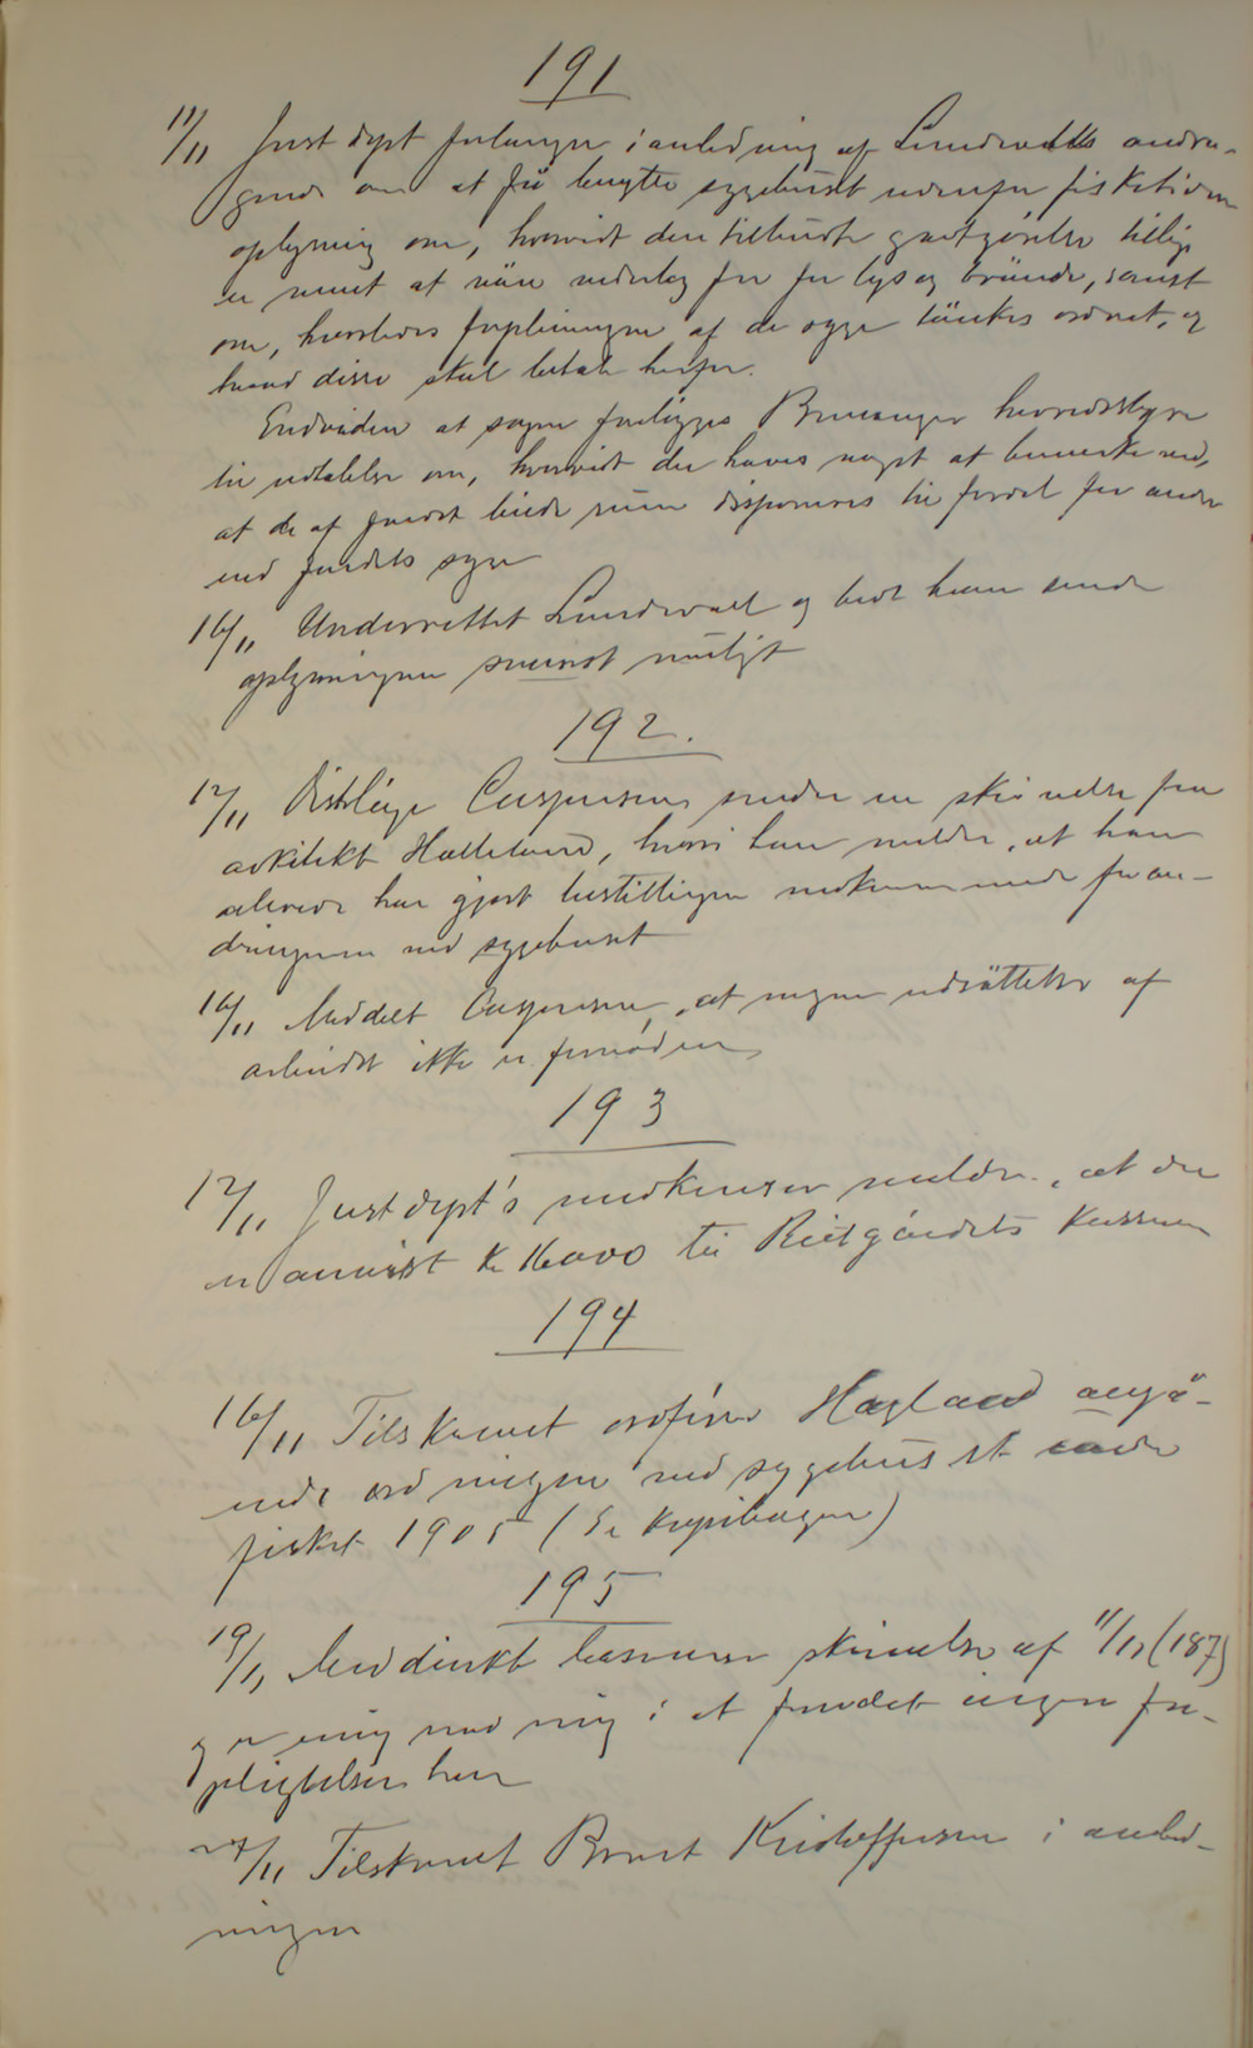 191
11/11 Just dept forlanger i anledning af Lundevalls andra-
gende om at få benytte sygehuset udenfor fisketiden
oplysning om, hvorvidt den tilbudte godtgörelse tillige
er ment at være vederlag for lys og brænde, samt
om, hvorledes forpleiningen af de syge tænkes ordnet, og
hvad disse skal betale herfor.
Endvidere at sagen forelægges Bremanger herredsstyre
til udtalelse om, hvorvidt der haves noget at bemerke ved,
at de af fondet leiede rum disponeres til fordel for andre
end fondets syge
16/11 Underrettet Lundevall og bedt ham sende
oplysningen snarest muligt
192.
12/11 Distrlæge Caspersen sender en skrivelse fra
arkitekt Halleland, hvori han melder, at han
allerede har gjort bestillingen vedkommende foran-
dringerne ved sygehuset
16/11 Meddelt Caspersen, at nogen udsættelse af
arbeidet ikke er fornöden
193
12/11 Just dept's medkasserer melder, at der
er anvist K 16000 til Rietgåndets kassen
194
16/11 Tilskrevet ordfører Hagland angå-
ende ordningen ved sygehuset under
fisket 1905 (Se Kopibogen)
195
19/11 Meddirekt besvarer skrivelse af 11/11 (187)
og er enig med mig i at fondet ingen for-
pligtelser har
24/11 Tilskrevet Brast Kristoffersen i anled-
ningen